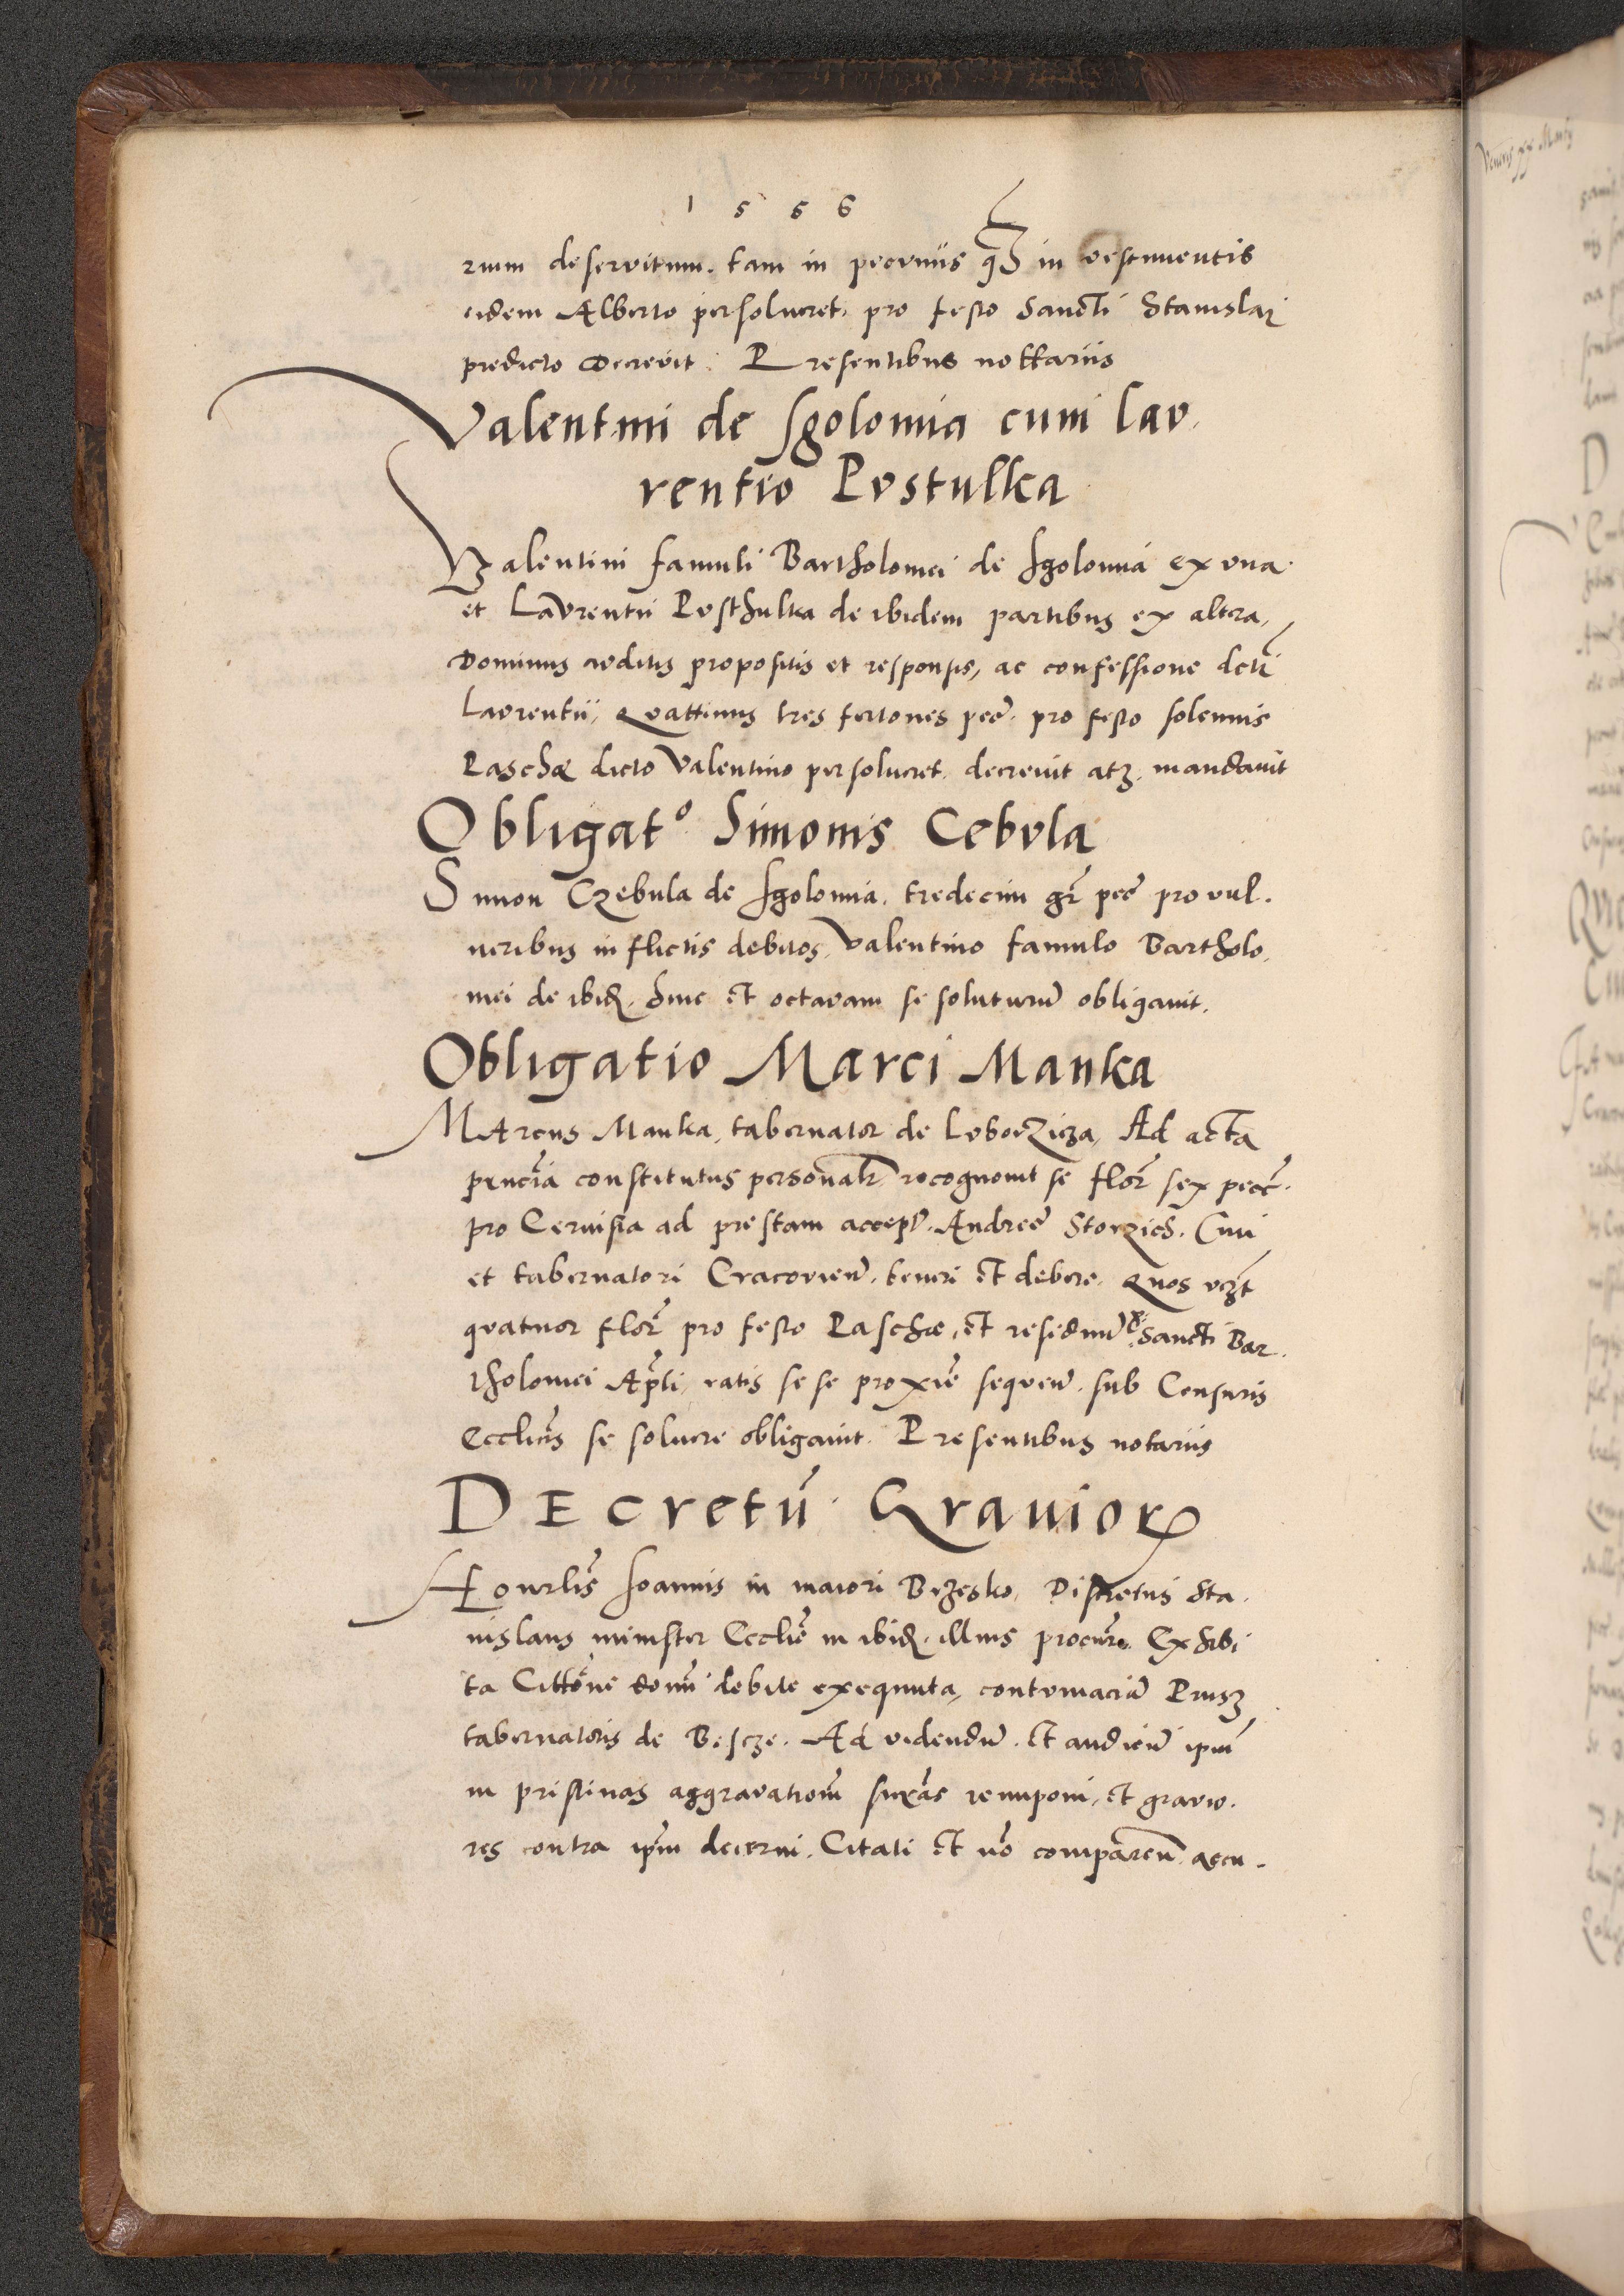 1556
rum deservitum. tam in pecuniis qȝ in vestimentis
eidem Alberto persolueret. pro festo Sancti Stanislai
predicto decrevit. Presentibus nottariis
Valentini de Igolomia cum Lau.
rentio Pustulka
Valentini famuli Bartholomei de Igolomia ex una.
et Laurentii Pusthulka de ibidem partibus ex altera,
Dominus auditis propositis et responsis, ac confessione dcti
Laurentii, Quattinus tres fertones pec̃. pro festo solennis
Paschæ dicto Valentino persolueret. decrevit atȝ. mandavit
Obligat.º Simonis Cebula
Simon Czebula de Igolomia. tredecim gr̃ pec̃ pro vul.
neribus inflictis debitos, Valentino famulo Bartholo.
mei de ibid̃. hinc et octavam se soluturũ obligavit.
Obligatio Marci Manka
MArcus Manka, tabernator de Luborzicza, Ad acta
pñcia constitutus personalr̃ recognovit se flor̃ sex pecc̃.
pro Cervisia ad prestam accept̃. Andree Storzich. Civi
et tabernatori Cracovien̄. teneri et debere. Quos vczt̃
quatuor flor̃ pro festo Paschæ, et residuũ Sancti Bar.
tholomei Apl̃i, ratis se se proxie sequen̄. sub Censuris
Eccl̃icis se soluere obligavit. Presentibus notariis
DEcretũ Graviorꝝ
HOnrlis̃ Ioannis in maiori Brzesko, Discretus Sta.
nislaus minister Eccl̃ie in ibid̃. illius procur̃. Exhibi
ta Cittõne domũ debite exequuta, contumaciã
tabernatoris de Ad videndũ. et audieñ ipm̃
in pristinas aggravationũ snias̃ reimponi, et gravio.
res contra ipm̃ decerni. Citati et nõ compareñ. accu.
Veneris Martij